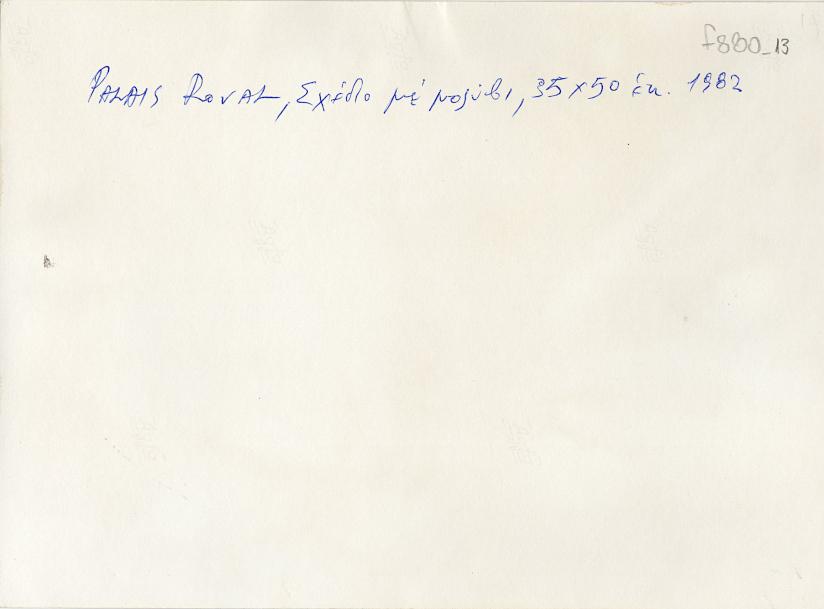 f880_13
PALAIS ROYAL, Σχέδιο μέ μολύβι, 35 x 50 έκ. 1982